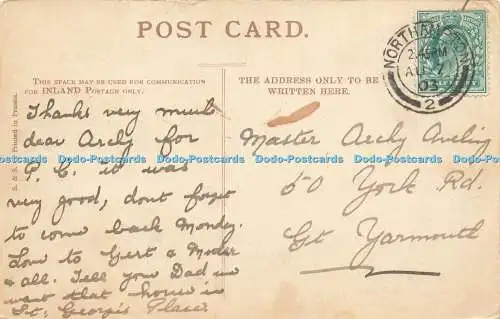 POST CARD.
THIS SPACE MAY BE USED FOR COMMUNICATION
FOR INLAND POSTAGE ONLY.
THE ADDRESS ONLY TO BE
WRITTEN HERE.
Thanks very much
dear Archy for
P. C. it was
very good, dont forget
to come back Monday.
Love to Gert & Mother
& all. Tell your Dad we
want that house in
St. Georges Place.
Master Archy Aveling
50 York Rd.
Gt Yarmouth
NORTHAMPTON
2.45PM
AU
03
2
Printed in Prussia.
Dodo-Postcards Dodo-Postcards Dodo-Postcards Dodo-Postcards Dodo-Postcards